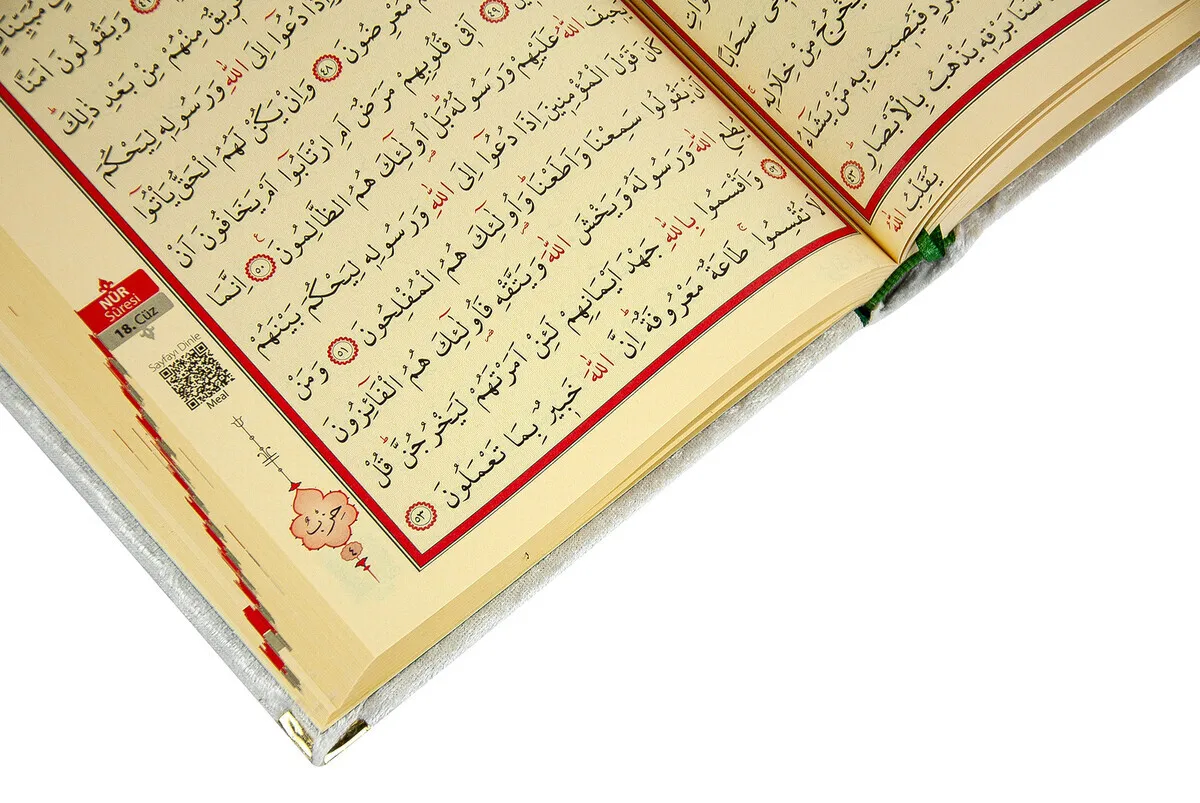 سَحَابًا
خْرُجُ مِنْ خِلَالِهِ
فَيُصِيبُ بِهِ مَنْ يَشَٓاءُ
سَنَا بَرْقِهِ يَذْهَبُ بِالْاَبْصَارِ ٤٣
يُقَلِّبُ اللّٰهُ
وَيَقُولُونَ اٰمَنَّا
فَرِيقٌ مِنْهُمْ مِنْ بَعْدِ ذٰلِكَ
دُعُٓوا اِلَى اللّٰهِ وَرَسُولِهِ لِيَحْكُمَ
مُعْرِضُونَ ٤٨ وَاِنْ يَكُنْ لَهُمُ الْحَقُّ يَأْتُٓوا
٤٩ اَفِي قُلُوبِهِمْ مَرَضٌ اَمِ ارْتَابُٓوا اَمْ يَخَافُونَ اَنْ
يَحِيفَ اللّٰهُ عَلَيْهِمْ وَرَسُولُهُ بَلْ اُولٰٓئِكَ هُمُ الظَّالِمُونَ ٥٠ اِنَّمَا
كَانَ قَوْلَ الْمُؤْمِنِينَ اِذَا دُعُٓوا اِلَى اللّٰهِ وَرَسُولِهِ لِيَحْكُمَ بَيْنَهُمْ
اَنْ يَقُولُوا سَمِعْنَا وَاَطَعْنَا وَاُولٰٓئِكَ هُمُ الْمُفْلِحُونَ ٥١ وَمَنْ
يُطِعِ اللّٰهَ وَرَسُولَهُ وَيَخْشَ اللّٰهَ وَيَتَّقْهِ فَاُولٰٓئِكَ هُمُ الْفَٓائِزُونَ
٥٢ وَاَقْسَمُوا بِاللّٰهِ جَهْدَ اَيْمَانِهِمْ لَئِنْ اَمَرْتَهُمْ لَيَخْرُجُنَّ قُلْ
لَا تُقْسِمُوا طَاعَةٌ مَعْرُوفَةٌ اِنَّ اللّٰهَ خَبِيرٌ بِمَا تَعْمَلُونَ ٥٣
NÛR
Sûresi
18. Cüz
Sayfayı Dinle
Meal
حِزْبٌ
٤